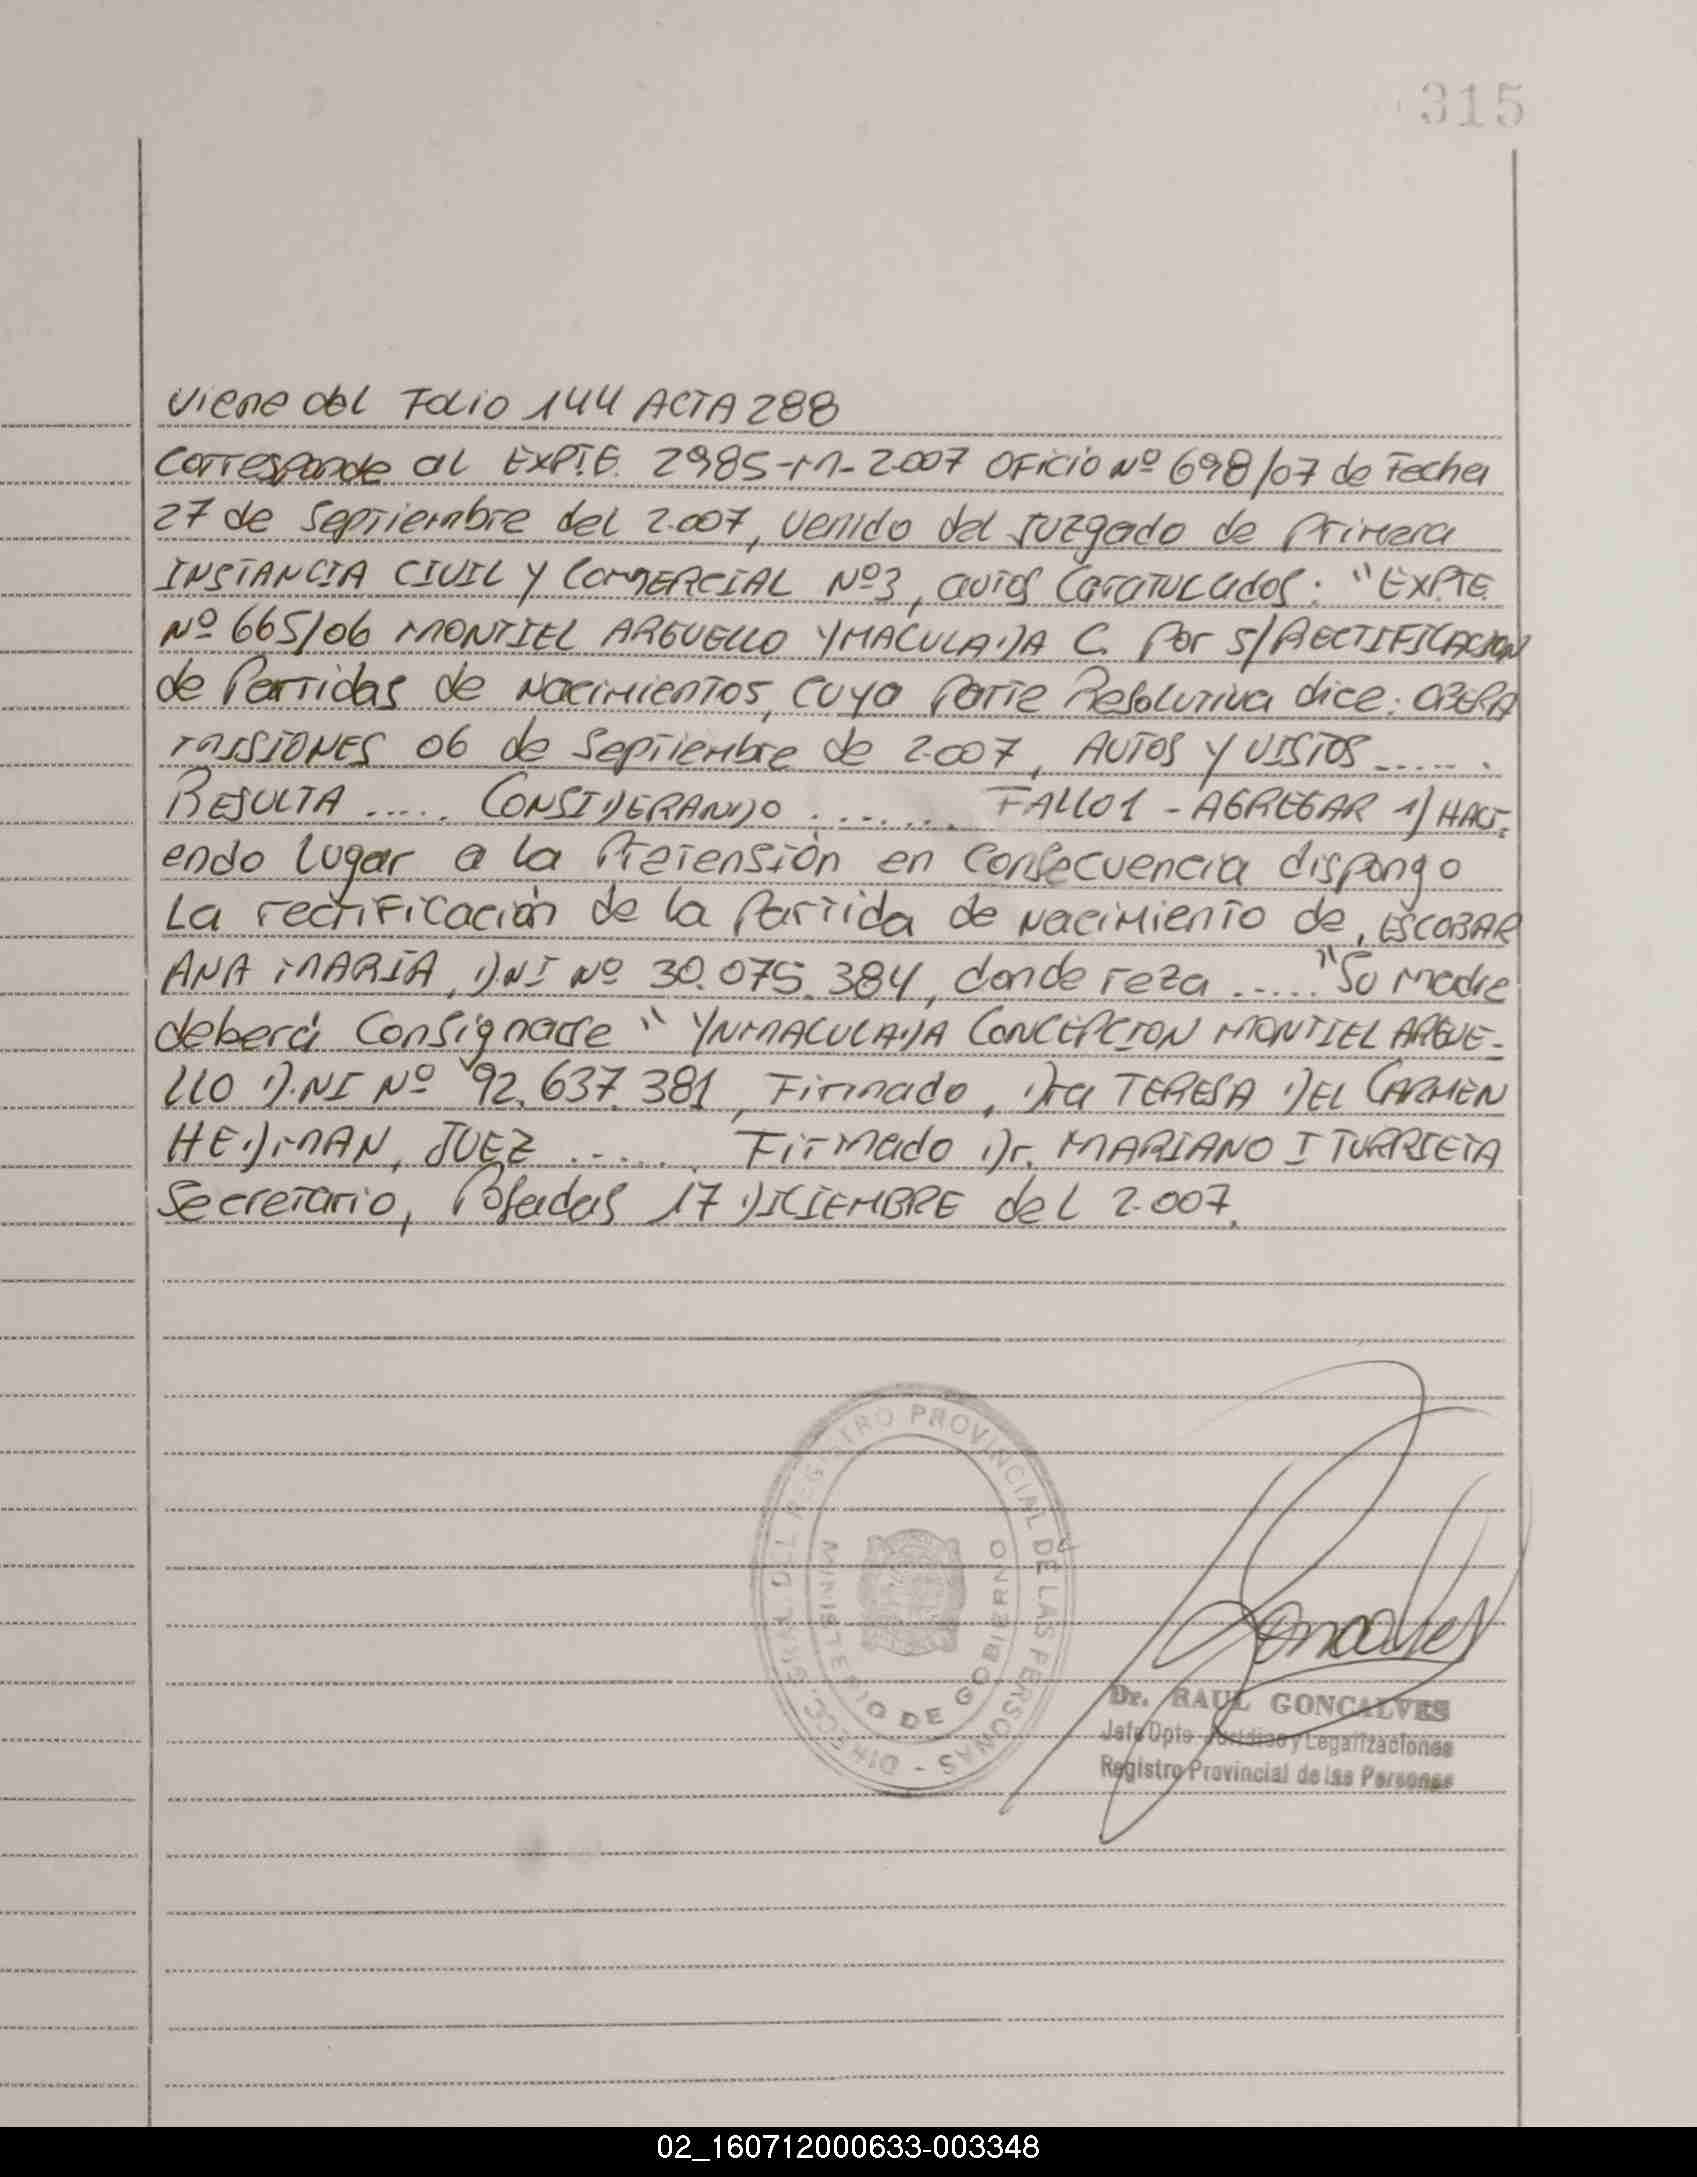 315
Viene del Folio 144 ACTA 288
Corresponde al EXPTE. 2985-M-2.007 OFicio Nº 698/07 de Fecha
27 de Septiembre del 2.007, venido del Juzgado de Primera
INSTANCIA CIVIL Y COMERCIAL Nº3, autos Caratulados: "EXPTE.
Nº 665/06 MONTIEL ARGUELLO YMACULADA C. Por S/RECTIFICACION
de Partidas de Nacimientos, cuya Parte Resolutiva dice: OBERA
MISIONES 06 de Septiembre de 2.007, AUTOS Y VISTOS.......
RESULTA ..... CONSIDERANDO ........ FALLO 1 - AGREGAR 1) HACI-
endo lugar a la Pretensión en Consecuencia dispongo
La rectificación de la Partida de Nacimiento de, ESCOBAR
ANA MARIA, D.NI Nº 30.075.384, donde reza ..... "Su madre
deberá Consignarse " YNMACULADA CONCEPCION MONTIEL ARGUE-
LLO D.NI Nº 92.637.381, Firmado, Dra TERESA DEL CARMEN
HEDMAN, JUEZ ...... Firmado Dr. MARIANO ITURRIETA
Secretario, Posadas 17 DICIEMBRE del 2.007.
DIRECC. GRAL. DEL REGISTRO PROVINCIAL DE LAS PERSONAS -
MINISTERIO DE GOBIERNO
Goncalves
Dr. RAUL GONCALVES
Jefe Dpto Jurídico y Legalizaciones
Registro Provincial de las Personas
02_160712000633-003348